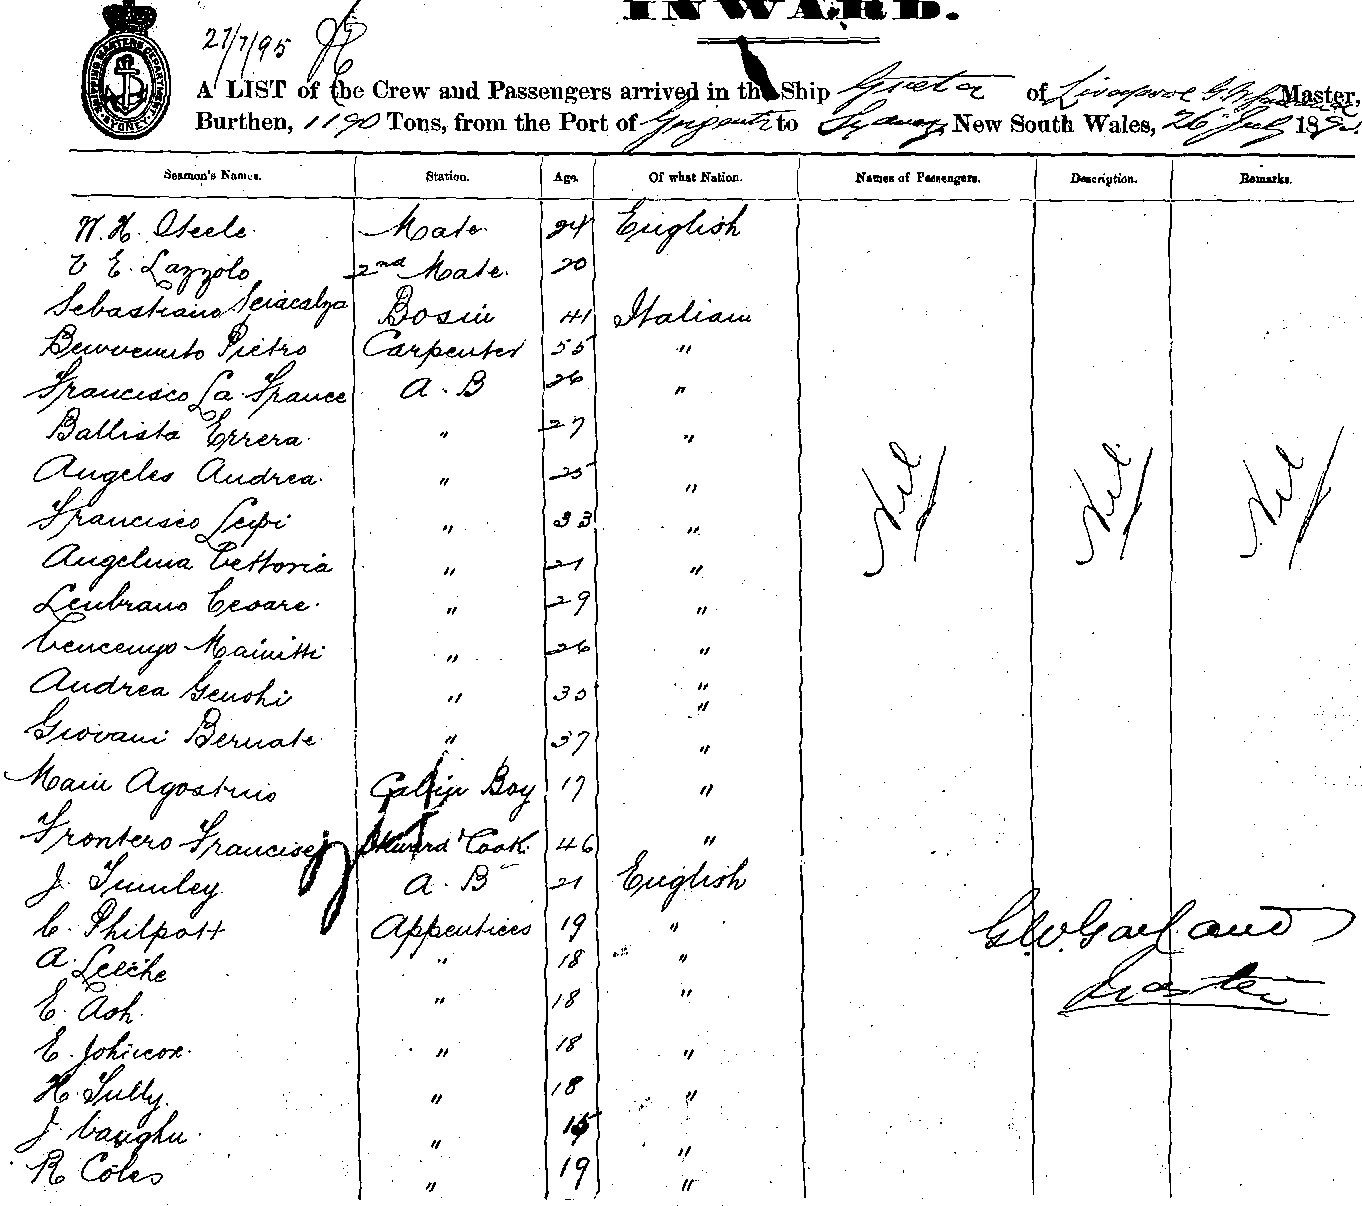 INWARD.
SHIPPING MASTER'S DEPARTMENT SYDNEY
27/7/95
A LIST of the Crew and Passengers arrived in the Ship Greta of Liverpool G W Master,
Burthen, 1190 Tons, from the Port of Girgenti to Sydney, New South Wales, 26 July 1895
Seamen's Names. Station. Age. Of what Nation. Names of Passengers. Description. Remarks.
W. H. Steele Mate 24 English
E. Lazzolo 2nd Mate. 20
Sebastiano Sciacalza Bosin 41 Italian
Benvenuto Pietro Carpenter 55 "
Francisco La France A.B 26 "
Battista Errera " 27 "
Angeles Andrea " 25 "
Francisco " 33 "
Angelina Vettoria " 21 "
Cesare " 29 "
Vencenzo " 26 "
Andrea " 35 "
"
Giovani Bernate " 37 "
Agostino Cabin Boy 17 "
Frontero Francisco Steward & Cook 46 "
J. Tumley A.B 21 English
C. Philpott Appentices 19 "
A. Leiche " 18 "
E. Ash " 18 "
E. Johncox " 18 "
H. Tully " 18 "
J. Vaughn " 15 "
R Coles " 19 "
Nil Nil Nil
G.W. Garland
Master